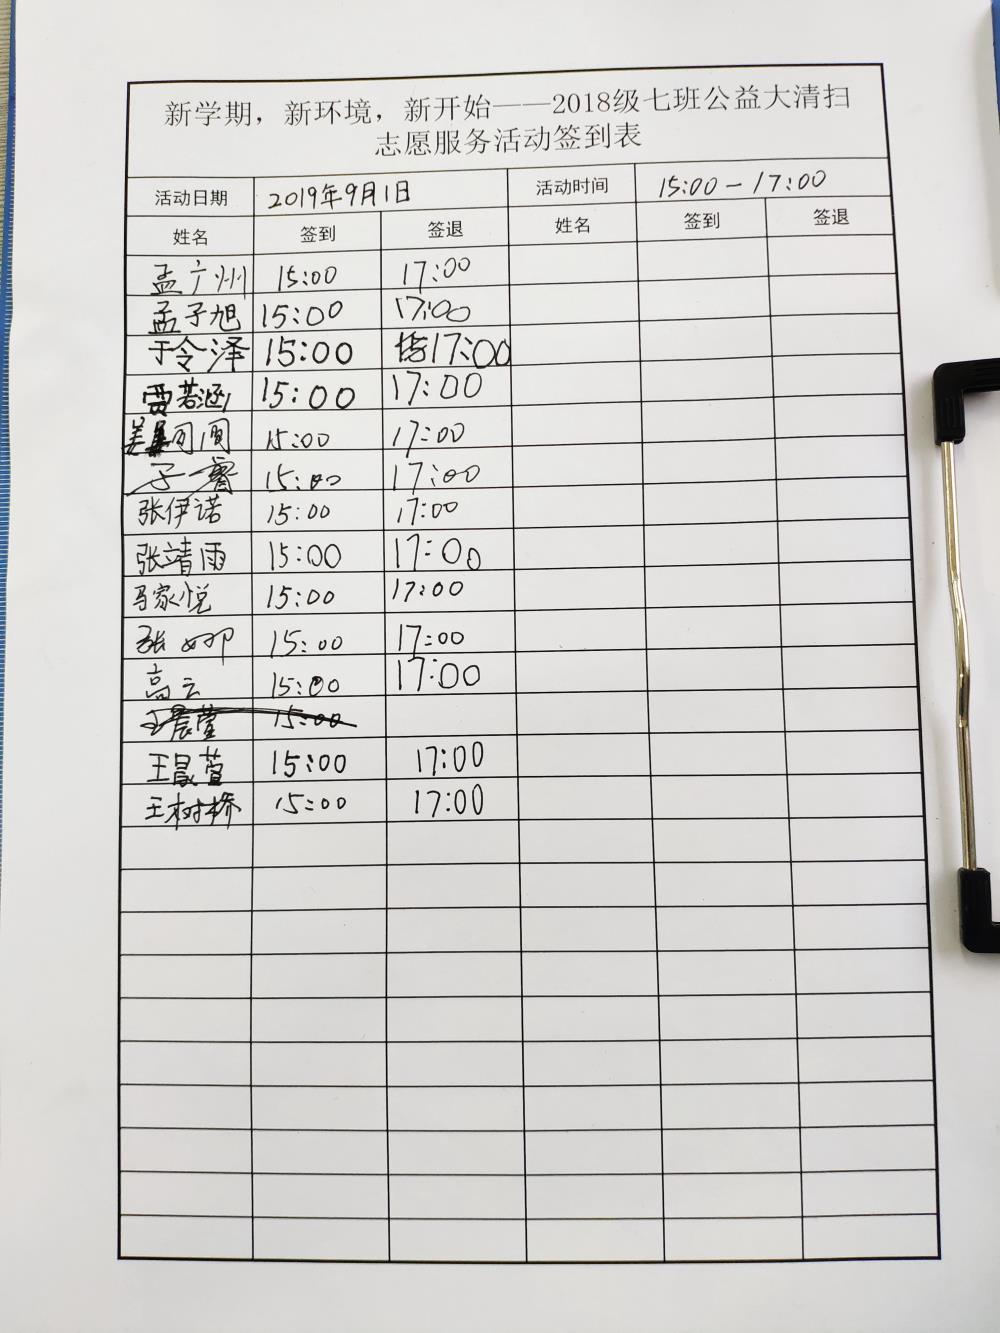 新学期，新环境，新开始——2018级七班公益大清扫
志愿服务活动签到表
活动日期 2019年9月1日 活动时间 15:00-17:00
姓名 签到 签退 姓名 签到 签退
孟广州 15:00 17:00
孟子旭 15:00 17:00
于令泽 15:00 17:00
贾若涵 15:00 17:00
15:00 17:00
15:00 17:00
张伊诺 15:00 17:00
张靖雨 15:00 17:00
马家悦 15:00 17:00
张 15:00 17:00
高云 15:00 17:00
王晨萱 15:00
王晨萱 15:00 17:00
王树桥 15:00 17:00